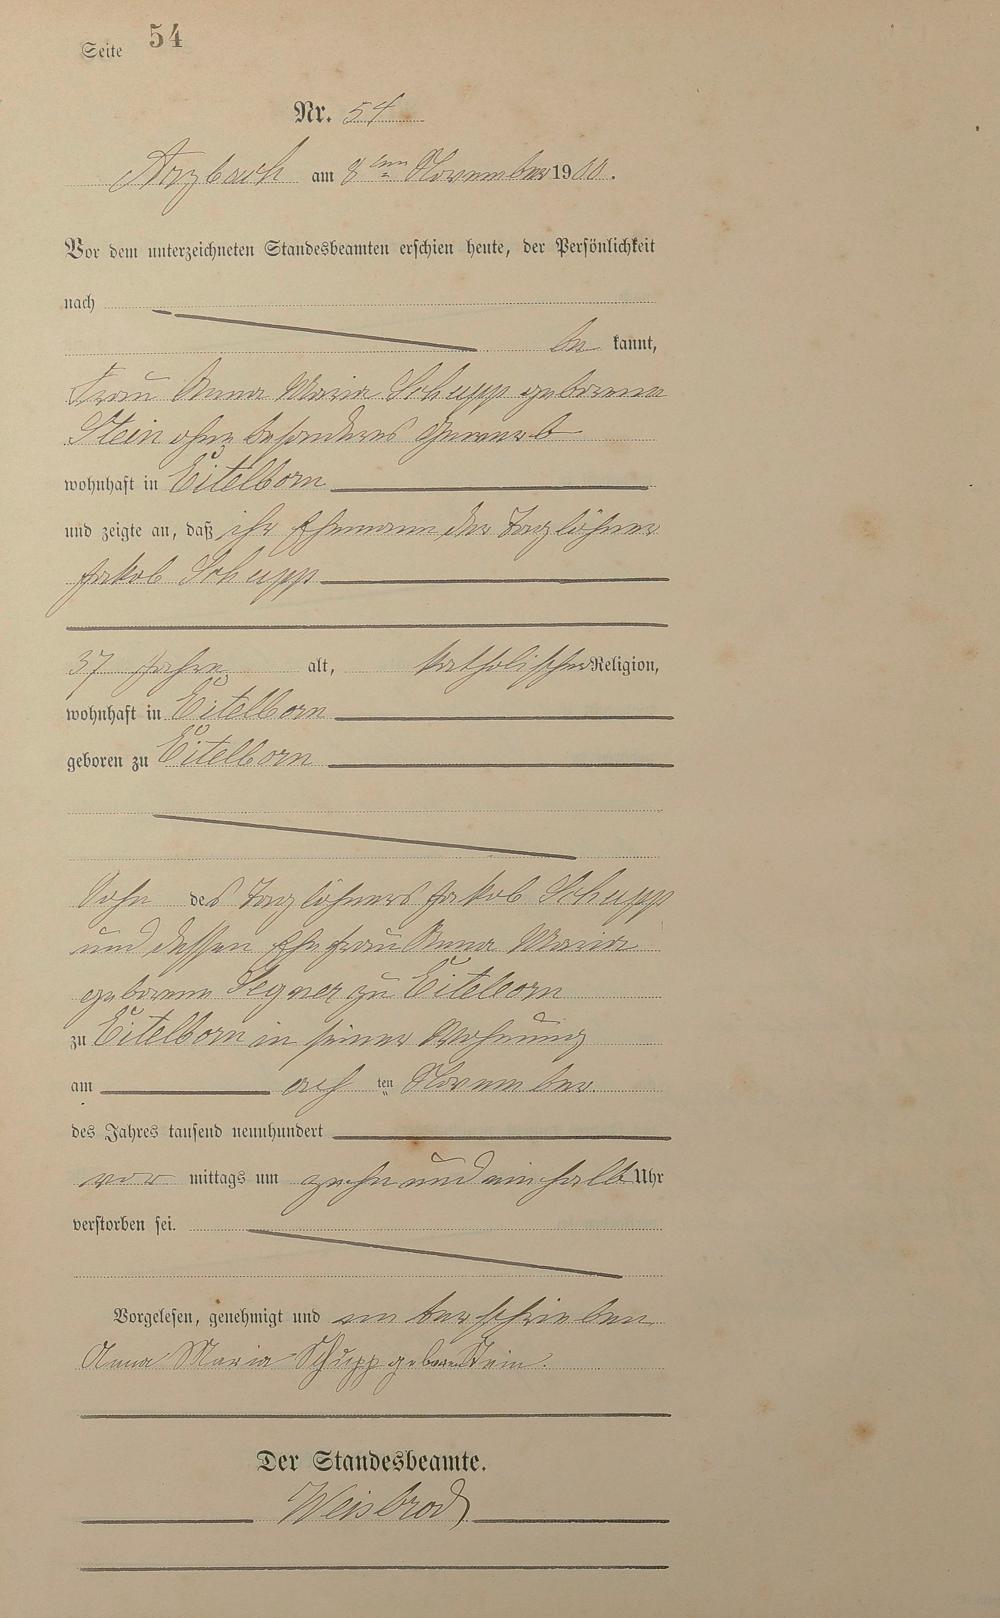 Seite 54
Nr. 54
Arzbach am 8ten November 1900.
Vor dem unterzeichneten Standesbeamten erschien heute, der Persönlichkeit
nach
be kannt,
Frau Anna Maria Schupp geborene
Stein ohne besonderes Gewerb
wohnhaft in Eitelborn
und zeigte an, daß ihr Ehemann der Taglöhner
Jakob Schupp
37 Jahre alt, katholischer Religion,
wohnhaft in Eitelborn
geboren zu Eitelborn
Sohn des Taglöhners Jakob Schupp
und dessen Ehefrau Anna Maria
geborene Segner zu Eitelborn
zu Eitelborn in seiner Wohnung
am acht ten November
des Jahres tausend neunhundert
vor mittags um zehn und ein halb Uhr
verstorben sei.
Vorgelesen, genehmigt und unterschrieben
Anna Maria Schupp geborene Stein.
Der Standesbeamte.
Weisbrod